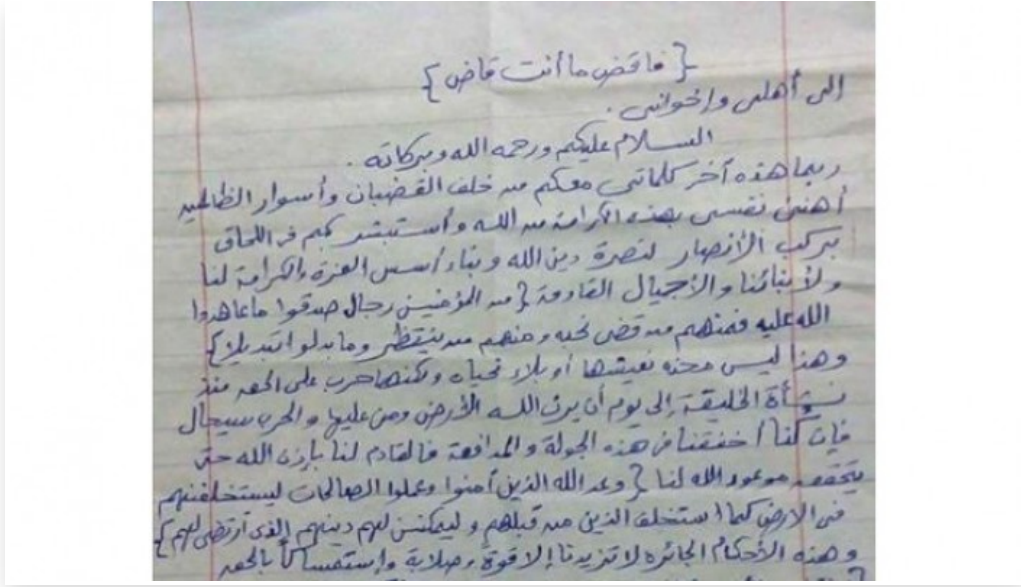 {فاقض ما أنت قاض}
إلى أهلى وإخوانى .
السلام عليكم ورحمه الله وبركاته .
ربما هذه آخر كلماتى معكم من خلف القضبان وأسوار الظالمين
أهنئ نفسى بهذه الكرامة من الله وأستبشر بكم فى اللحاق
بركب الأنصار لنصرة دين الله وبناء أسس العزة والكرامة لنا
ولأبنائنا والأجيال القادمة {من المؤمنين رجال صدقوا ما عاهدوا
الله عليه فمنهم من قضى نحبه ومنهم من ينتظر وما بدلوا تبديلا}
وهذا ليس محنه نعيشها أو بلاء نحياه ولكنها حرب على الحق منذ
نشأة الخليقة إلى يوم أن يرث الله الأرض ومن عليها والحرب سيجال
فإن كنا أخفقنا فى هذه الجولة والمدافعة فالقادم لنا بإذن الله حتى
يتحقق موعود الله لنا {وعد الله الذين آمنوا وعملوا الصالحات ليستخلفنهم
فى الارض كما استخلف الذين من قبلهم وليمكنن لهم دينهم الذى ارتضى لهم}
وهذه الأحكام الجائره لا تزيدنا إلا قوة وصلابة وإستمساكاً بالحق